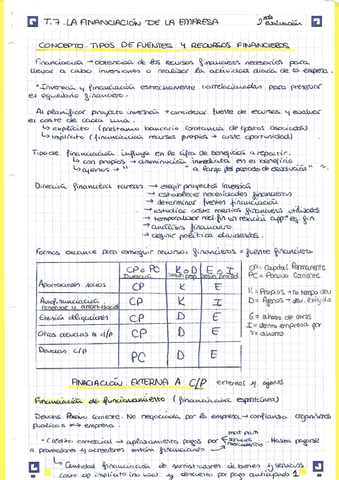 T.7. LA FINANCIACIÓN DE LA EMPRESA 2nda evaluación
CONCEPTO. TIPOS DE FUENTES Y RECURSOS FINANCIEROS
Financiación → obtención de los recursos financieros necesarios para
llevar a cabo inversiones o realizar la actividad diaria de la empresa.
*Inversión y financiación estrechamente correlacionadas para preservar
el equilibrio financiero.
Al planificar proyecto inversión → considerar fuente de recursos y evaluar
el coste de cada una.
↳ explícito (préstamo bancario continuo de gastos asociados)
↳ implícito (financiación recursos propios = coste oportunidad)
Tipo de financiación influye en la cifra de beneficios a repartir.
↳ con propios → disminución inmediata en el beneficio
↳ ajenos → " a largo del periodo de devolución "
Dirección financiera tareas → elegir proyectos inversión
→ establecer necesidades financieras
→ determinar fuentes financiación
→ estudiar coste medios financieros utilizados
→ análisis financiero
→ seguir política dividendos.
Formas alcance para conseguir recursos financieros = fuente financiera
CP o PC K o D E o I
Duración
Aportaciones socios CP K E
Autofinanciación CP K I
Emisión obligaciones CP D E
Otras deudas a l/p CP D E
Deudas c/p PC D E
CP = Capital Permanente
PC = Pasivo Corriente
K = Propios → no tengo dev
D = Ajenos → dev. exigida
E = ahorro de otros
I = dentro empresa por
su ahorro
FINANCIACIÓN EXTERNA A C/P externos y ajenos
Financiación de funcionamiento (financiación espontánea)
Deudas Pasivo corriente. No negociada por la empresa → confianza organismos
públicos ↔ empresa.
· Crédito comercial → aplazamiento pagos por servicios mercaderías. Hasta pagarse
a proveedores y acreedores están financiando
↳ Cantidad financiación de suministradores de bienes y servicios
coste es implícito (no uso) y descuento por pago anticipado 1